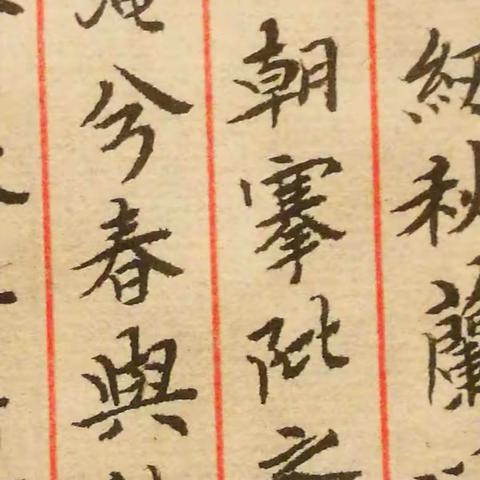 紉秋蘭
朝搴阰之
兮春與